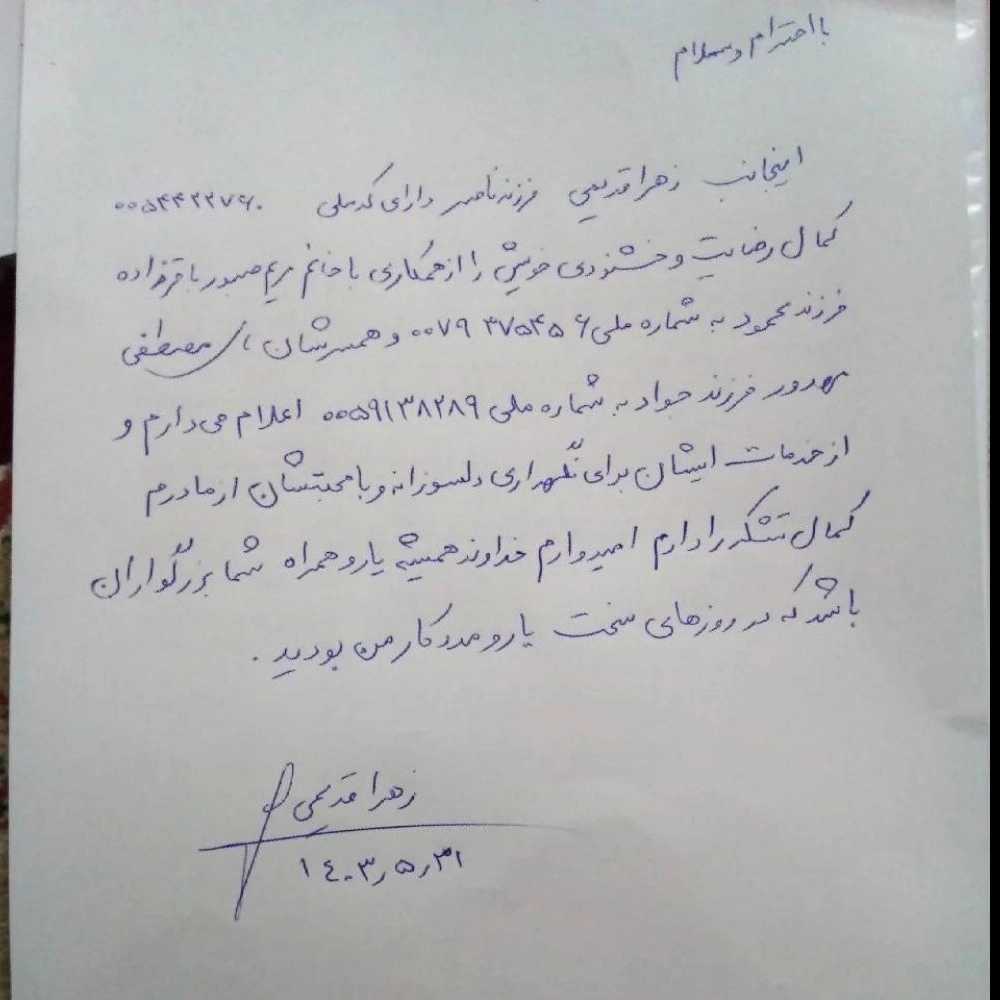 با احترام و سلام
اینجانب زهرا قدیمی فرزند ناصر دارای کدملی ۰۰۵۴۴۲۲۷۶۰
کمال رضایت و خشنودی خویش را از همکاری با خانم مریم صبور باقرزاده
فرزند محمود به شماره ملی ۰۰۷۹۳۷۵۴۵۶ و همسرشان مصطفی
فرزند جواد به شماره ملی ۰۰۵۹۱۳۸۲۸۹ اعلام می‌دارم و
از خدمات ایشان برای نگهداری دلسوزانه و با محبتشان از مادرم
کمال تشکر را دارم امیدوارم خداوند همیشه یار و همراه شما بزرگواران
باشد که در روزهای سخت یار و مددکار من بودید.
زهرا قدیمی
۱۴۰۳٫۵٫۳۱